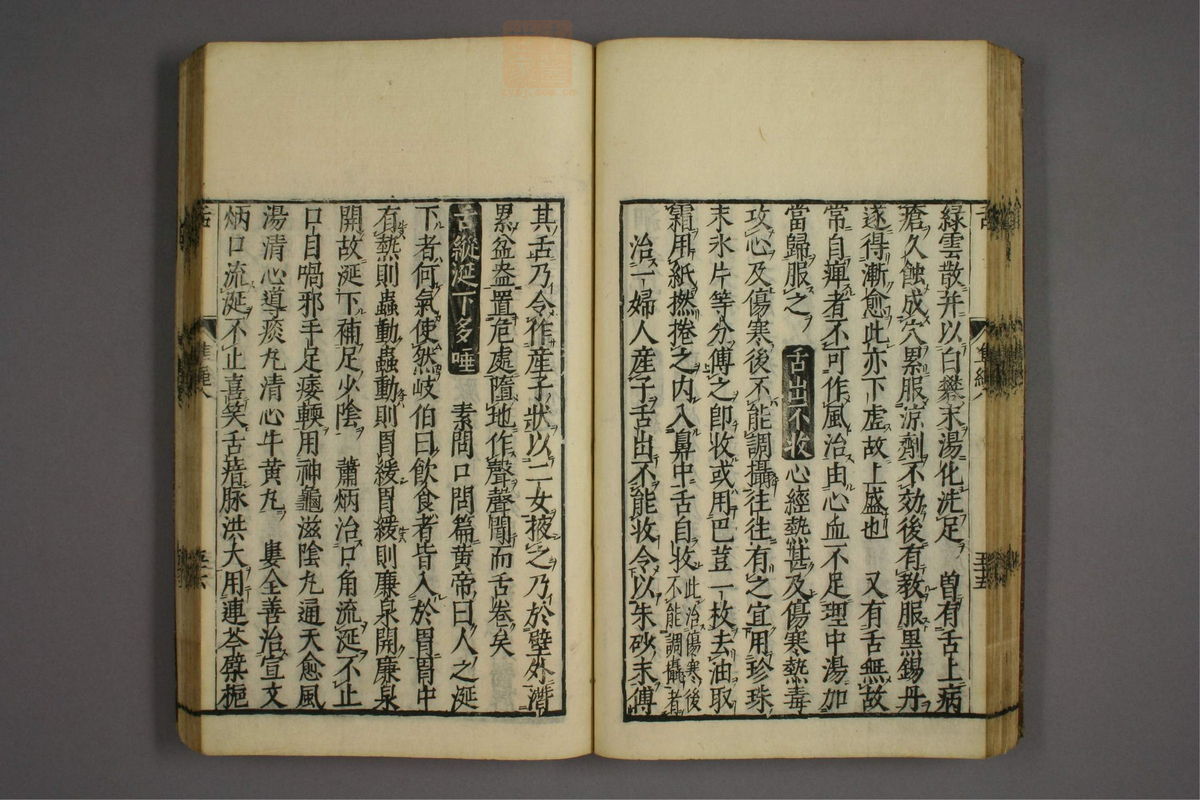 緑雲散并以白礬末湯化洗足　曽有舌上病
瘡久蝕成穴累服涼劑不効後有教服黒錫丹
遂得漸愈此亦下虚故上盛也　又有舌無故
常自痺者不可作風治由心血不足理中湯加
當歸服之　舌出不收　心經熱甚及傷寒熱毒
攻心及傷寒後不能調攝往往有之宜用珍珠
末氷片等分傅之即收或用巴荳一枚去油取
霜用紙撚捲之内入鼻中舌自收此治傷寒後不能調攝者
治一婦人産子舌出不能收令以朱砂末傅
其舌乃令作産子狀以二女掖之乃於壁外潛
累盆盎置危處墮地作聲聲聞而舌卷矣
舌縱涎下多唾　素問口問篇黄帝曰人之涎
下者何氣使然岐伯曰飲食者皆入於胃胃中
有熱則蟲動蟲動則胃緩胃緩則廉泉開廉泉
開故涎下補足少陰　蕭炳治口角流涎不止
口目喎邪手足痿輭用神龜滋陰丸通天愈風
湯清心導痰丸清心牛黄丸　婁全善治宣文
炳口流涎不止喜笑舌瘖脉洪大用連芩蘗梔